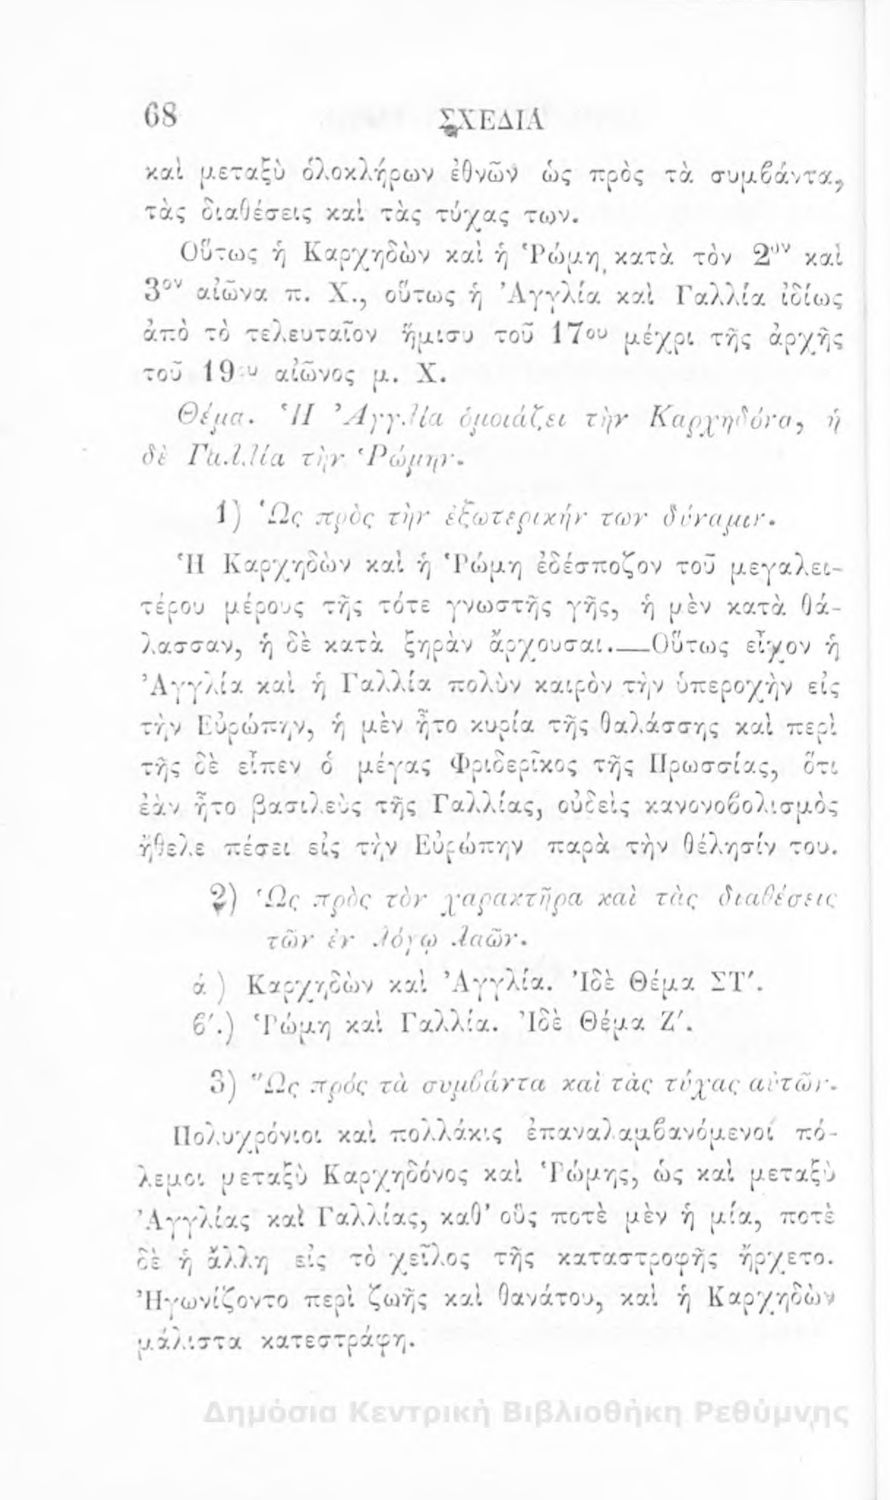 68
ΣΧΕΔΙΑ
καὶ μεταξὺ ὁλοκλήρων ἐθνῶν ὡς πρὸς τὰ συμβάντα,
τὰς διαθέσεις καὶ τὰς τύχας των.
Οὕτως ἡ Καρχηδὼν καὶ ἡ Ῥώμη κατὰ τὸν 2ον καὶ
3ον αἰῶνα π. Χ., οὕτως ἡ Ἀγγλία καὶ Γαλλία ἰδίως
ἀπὸ τὸ τελευταῖον ἥμισυ τοῦ 17ου μέχρι τῆς ἀρχῆς
τοῦ 19ου αἰῶνος μ. Χ.
Θέμα. Ἡ Ἀγγλία ὁμοιάζει τὴν Καρχηδόνα, ἡ
δὲ Γαλλία τὴν Ῥώμην.
1) Ὡς πρὸς τὴν ἐξωτερικήν των δύναμιν.
Ἡ Καρχηδὼν καὶ ἡ Ῥώμη ἐδέσποζον τοῦ μεγαλει-
τέρου μέρους τῆς τότε γνωστῆς γῆς, ἡ μὲν κατὰ θά-
λασσαν, ἡ δὲ κατὰ ξηρὰν ἄρχουσαι.—Οὕτως εἶχον ἡ
Ἀγγλία καὶ ἡ Γαλλία πολὺν καιρὸν τὴν ὑπεροχὴν εἰς
τὴν Εὐρώπην, ἡ μὲν ἦτο κυρία τῆς θαλάσσης καὶ περὶ
τῆς δὲ εἶπεν ὁ μέγας Φριδερῖκος τῆς Πρωσσίας, ὅτι
ἐὰν ἦτο βασιλεὺς τῆς Γαλλίας, οὐδεὶς κανονοβολισμὸς
ἤθελε πέσει εἰς τὴν Εὐρώπην παρὰ τὴν θέλησίν του.
2) Ὡς πρὸς τὸν χαρακτῆρα καὶ τὰς διαθέσεις
τῶν ἐν λόγῳ λαῶν.
ά ) Καρχηδὼν καὶ Ἀγγλία. Ἰδὲ Θέμα ΣΤ'.
β'.) Ῥώμη καὶ Γαλλία. Ἰδὲ Θέμα Ζ'.
3) Ὣς πρός τὰ συμβάντα καὶ τὰς τύχας αὐτῶν.
Πολυχρόνιοι καὶ πολλάκις ἐπαναλαμβανόμενοι πό-
λεμοι μεταξὺ Καρχηδόνος καὶ Ῥώμης, ὡς καὶ μεταξὺ
Ἀγγλίας καὶ Γαλλίας, καθ' οὓς ποτὲ μὲν ἡ μία, ποτὲ
δὲ ἡ ἄλλη εἰς τὸ χεῖλος τῆς καταστροφῆς ἤρχετο.
Ἠγωνίζοντο περὶ ζωῆς καὶ θανάτου, καὶ ἡ Καρχηδὼν
μάλιστα κατεστράφη.
Δημόσια Κεντρική Βιβλιοθήκη Ρεθύμνης